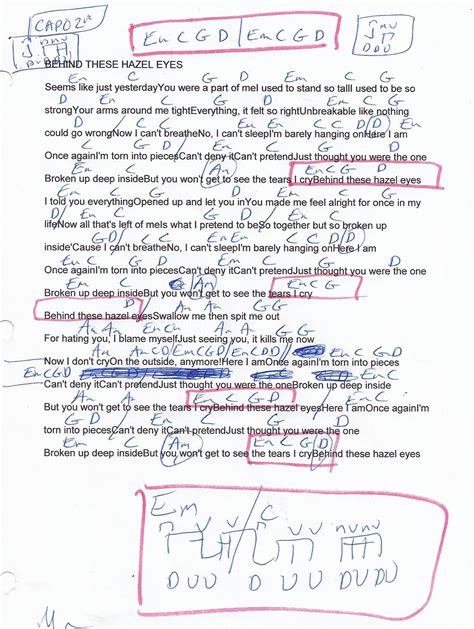 CAPO 2nd
Em C G D | Em C G D
D U U
BEHIND THESE HAZEL EYES
Em C G D Em C G
Seems like just yesterdayYou were a part of meI used to stand so tallI used to be so
D Em C G D Em C G
strongYour arms around me tightEverything, it felt so rightUnbreakable like nothing
D Em Em C C D (D) Em
could go wrongNow I can't breatheNo, I can't sleepI'm barely hanging onHere I am
C G D Em C G D
Once againI'm torn into piecesCan't deny itCan't pretendJust thought you were the one
Em C (Am) Em C G D
Broken up deep insideBut you won't get to see the tears I cryBehind these hazel eyes
Em C G D Em C G
I told you everythingOpened up and let you inYou made me feel alright for once in my
D/ Em C G D/ Em C
lifeNow all that's left of meIs what I pretend to beSo together but so broken up
G D/ Em Em C C D (D)
inside'Cause I can't breatheNo, I can't sleepI'm barely hanging onHere I am
Em C G D Em C G D
Once againI'm torn into piecesCan't deny itCan't pretendJust thought you were the one
Em C (Am) Em C G
Broken up deep insideBut you won't get to see the tears I cry
D Am Am G G
Behind these hazel eyesSwallow me then spit me out
Am Am Em Em G G
For hating you, I blame myselfJust seeing you, it kills me now
Am Am C D / Em C G D / Em C D D // Em C G D
Now I don't cryOn the outside, anymore!!Here I amOnce againI'm torn into pieces
Em C G D Em C
Can't deny itCan't pretendJust thought you were the oneBroken up deep inside
Am Em C G D Em C G D
But you won't get to see the tears I cryBehind these hazel eyesHere I amOnce againI'm
Em C G D
torn into piecesCan't deny itCan't pretendJust thought you were the one
Em C (Am) Em C G (D)
Broken up deep insideBut you won't get to see the tears I cryBehind these hazel eyes
Em C
D U U D U U D U D U